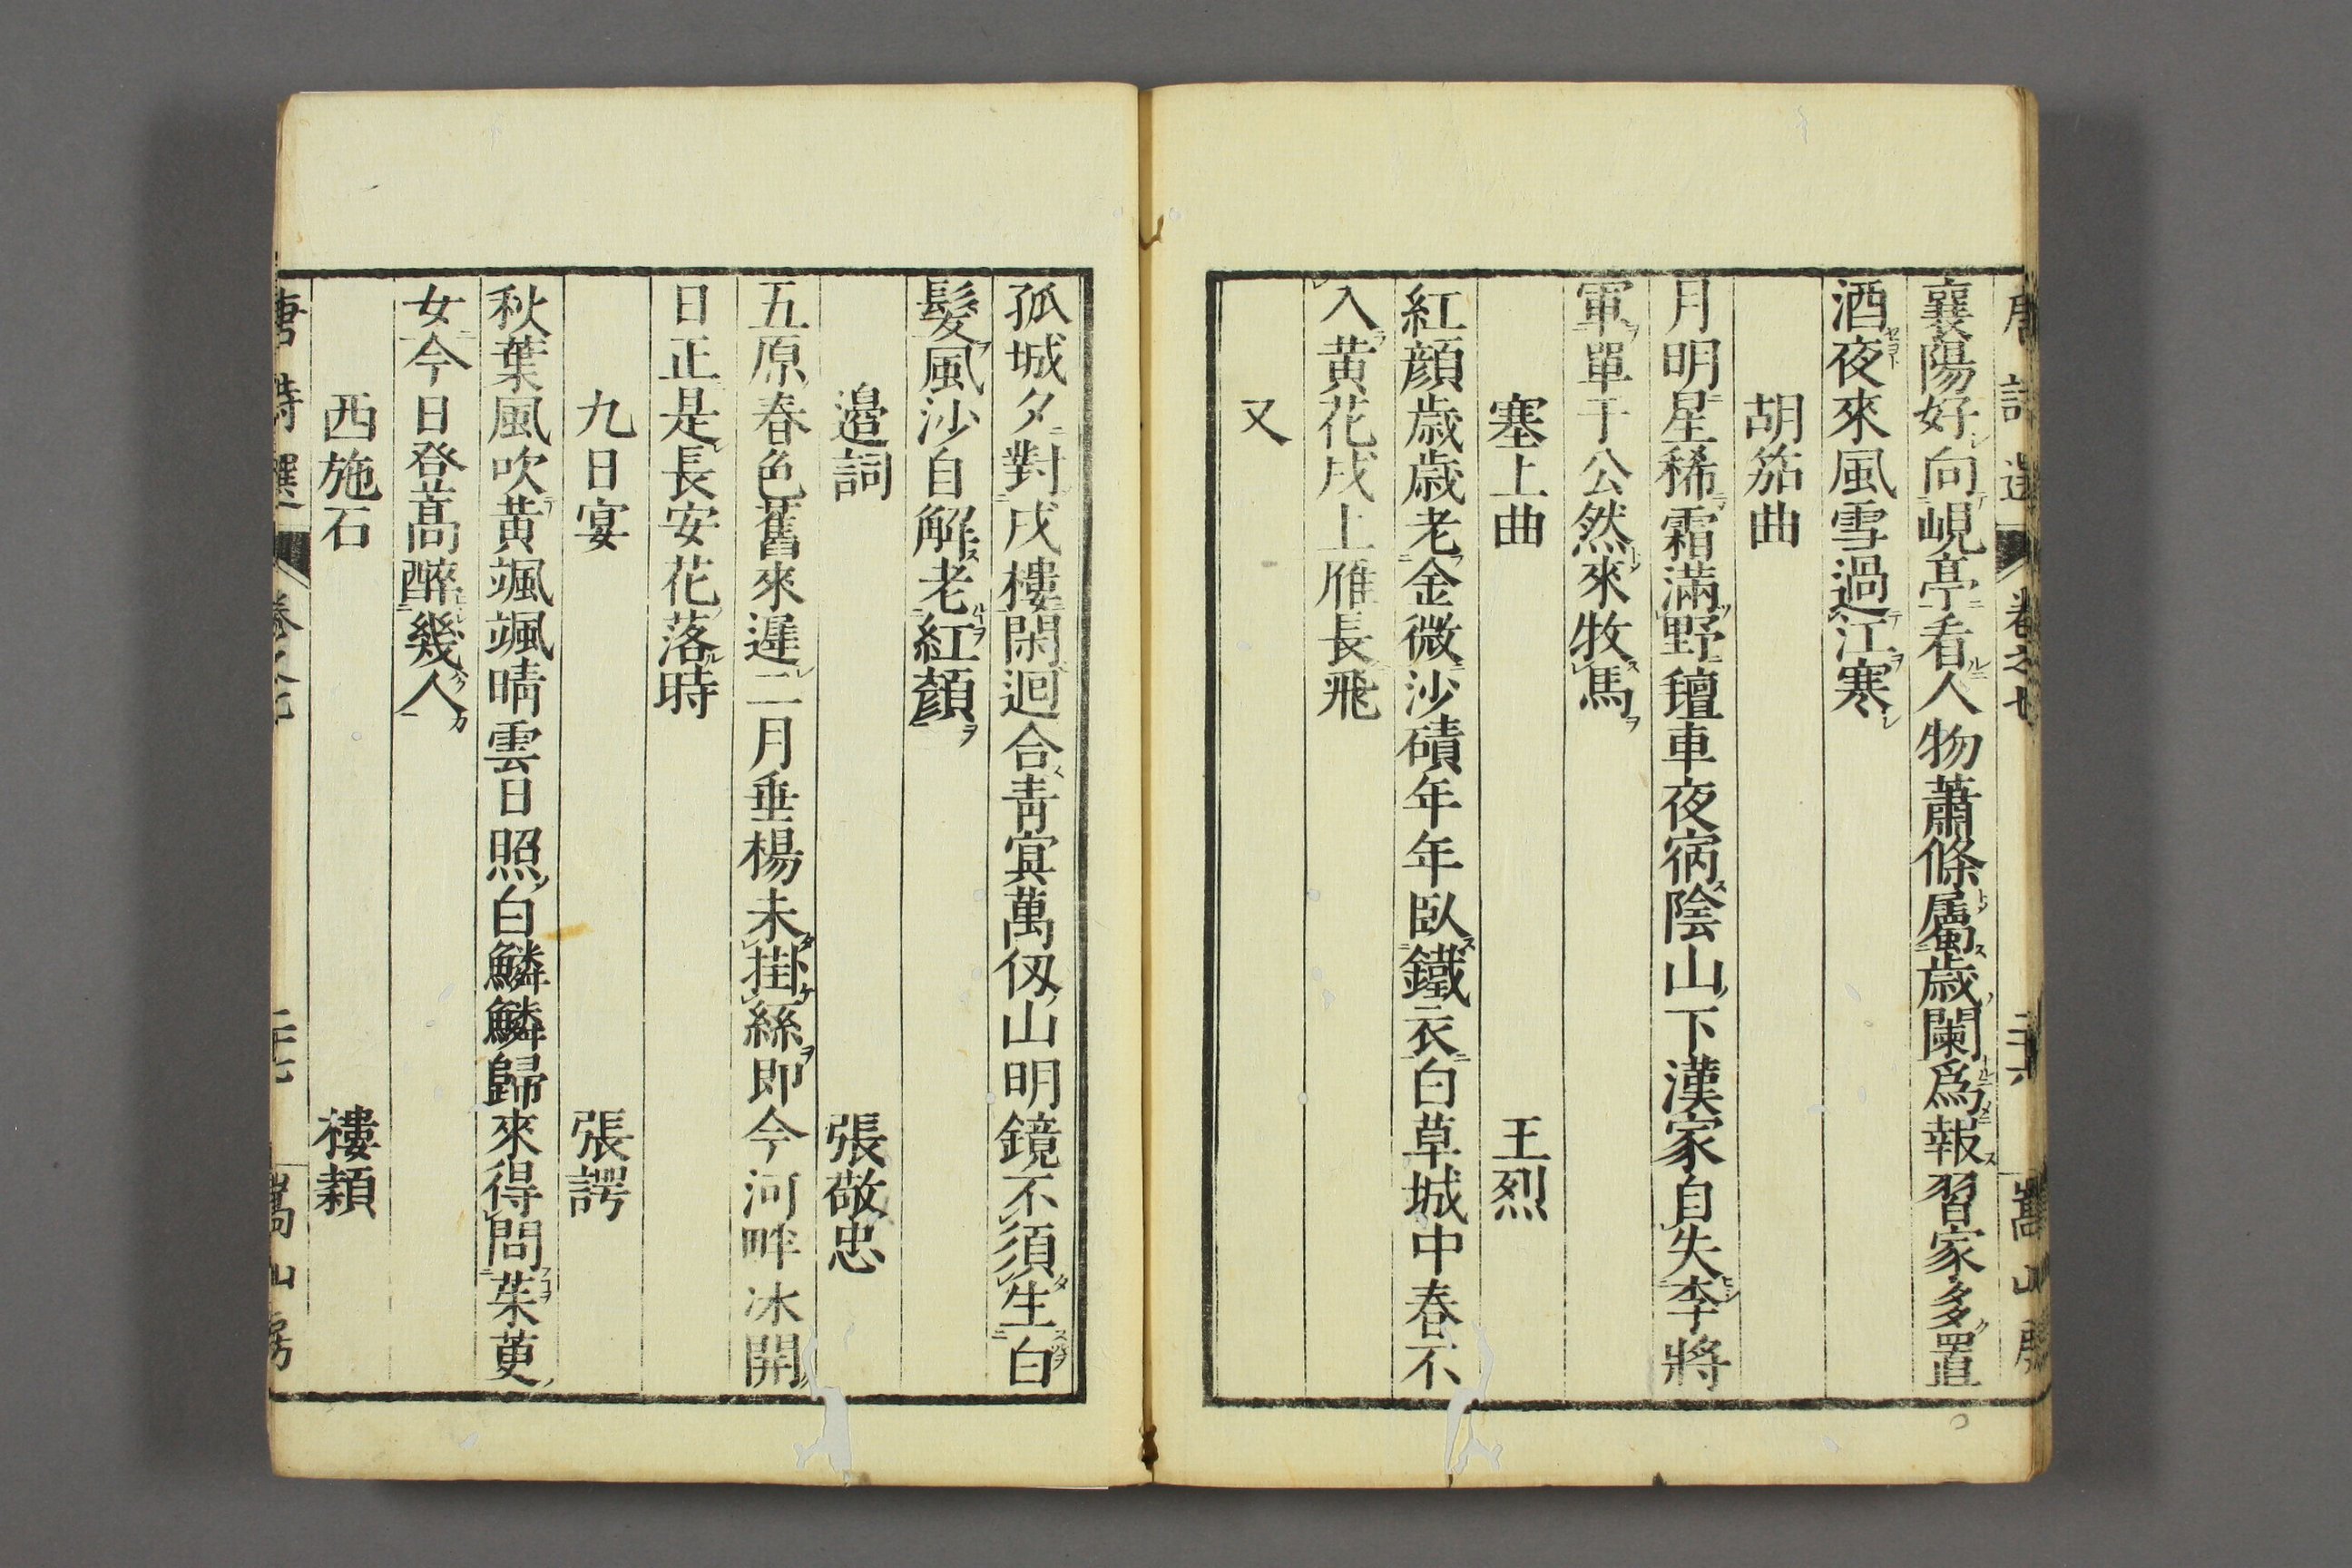 唐詩選 卷之七 二十六 嵩山房
襄陽好向峴亭看人物蕭條屬歳闌爲報習家多置
酒夜來風雪過江寒
胡笳曲
月明星稀霜滿野氊車夜宿陰山下漢家自失李將
軍單于公然來牧馬
塞上曲 王烈
紅顔歳歳老金微沙磧年年臥鐵衣白草城中春不
入黄花戍上雁長飛
又
孤城夕對戍樓閑迴合靑冥萬仭山明鏡不須生白
髮風沙自解老紅顏
邉詞 張敬忠
五原春色舊來遲二月垂楊未掛絲即今河畔冰開
日正是長安花落時
九日宴 張諤
秋葉風吹黃颯颯晴雲日照白鱗鱗歸來得問茱萸
女今日登髙醉幾人
西施石 樓頴
唐詩選 卷之七 二十七 嵩山房